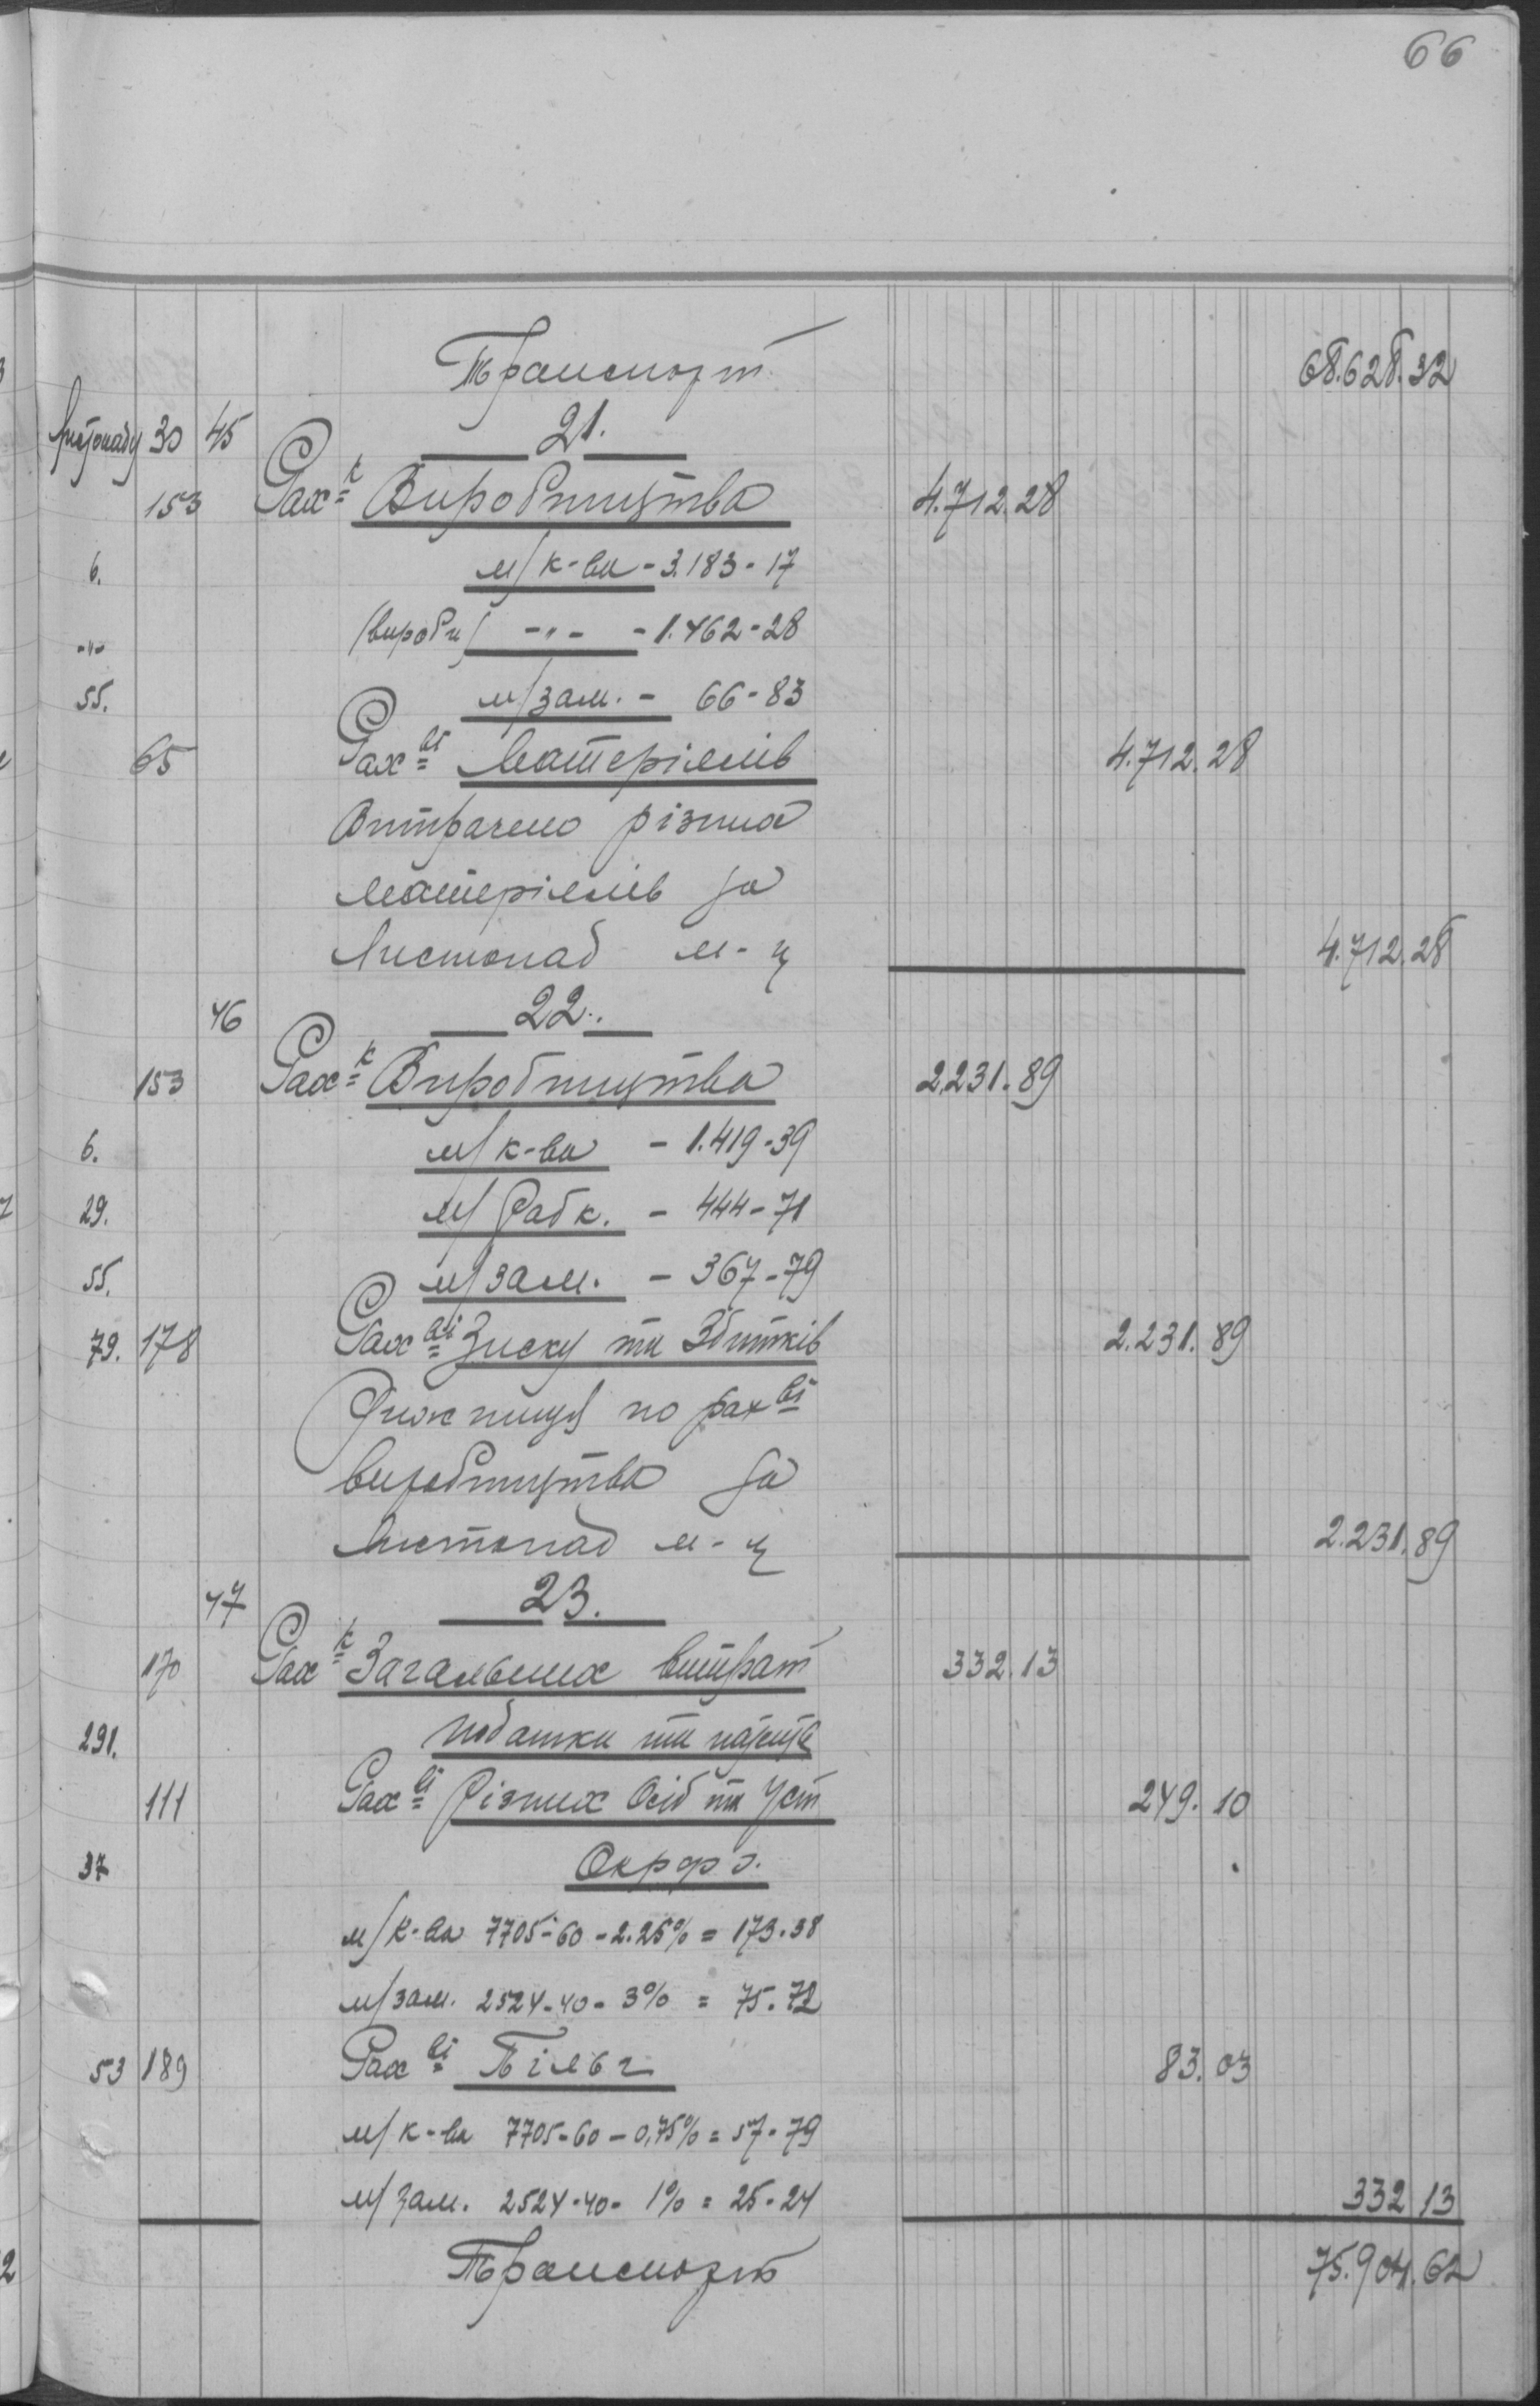 66
Транспорт 68.628.32
Листопаду 30 45 21.
153 Рах-к Виробництва 4.712.28
6. м/к-ва - 3.183-17
-"- (вироби) -"- - 1.462-28
55. м/зам. - 66-83
65 Рах-ві Матеріялів 4.712.28
Витрачено різних
матеріялів за
Листопад м-ц 4.712.28
46 22.
153 Рах-к Виробництва 2.231.89
6. м/к-ва - 1.419-39
29. м/Фабк. - 444-71
55. м/зам. - 367-79
79. 178 Рах-ві Зиску та Збитків 2.231.89
по рах-ві
виробництва за
Листопад м-ц 2.231.89
47 23.
170 Рах-к Загальних витрат 332.13
291. податки та
111 Рах-ві Різних Осіб та Уст 249.10
37 Окрфо.
м/к-ва 7705-60-2.25% = 173.38
м/зам. 2524-40-3% = 75.72
53 189 Рах-ві Пільг 83.03
м/к-ва 7705-60-0,75% = 57-79
м/зам. 2524-40-1% = 25-24 332 13
Транспорт 75.904.62